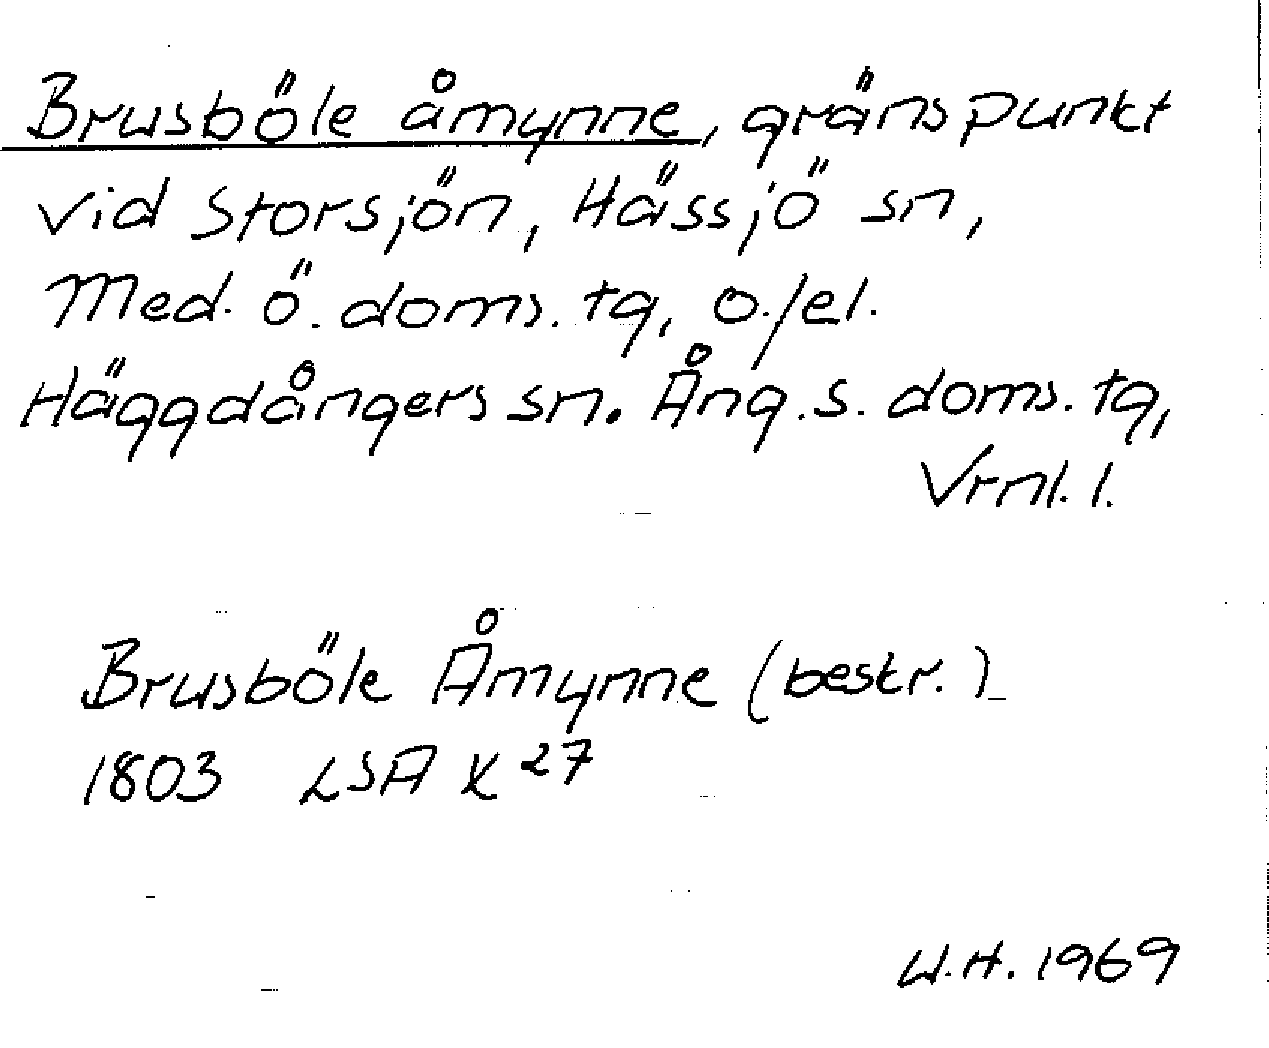 Brusböle åmynne, gränspunkt
vid Storsjön, Hässjö sn,
Med. ö. doms. tg, o./el.
Häggdångers sn. Ång. s. doms. tg,
Vrnl. l.
Brusböle Åmynne (bestr.)
1803 LSA X 27
U.H. 1969